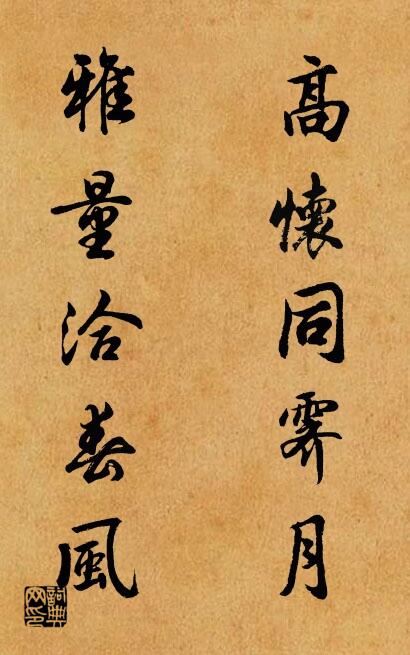 高懷同霽月
雅量洽春風
詞典网印